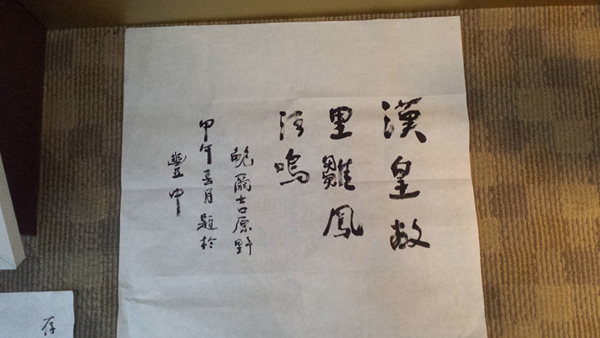 漢皇故
里雛鳳
清鳴
鮑爾吉原野
甲午五月題於
豐中
存